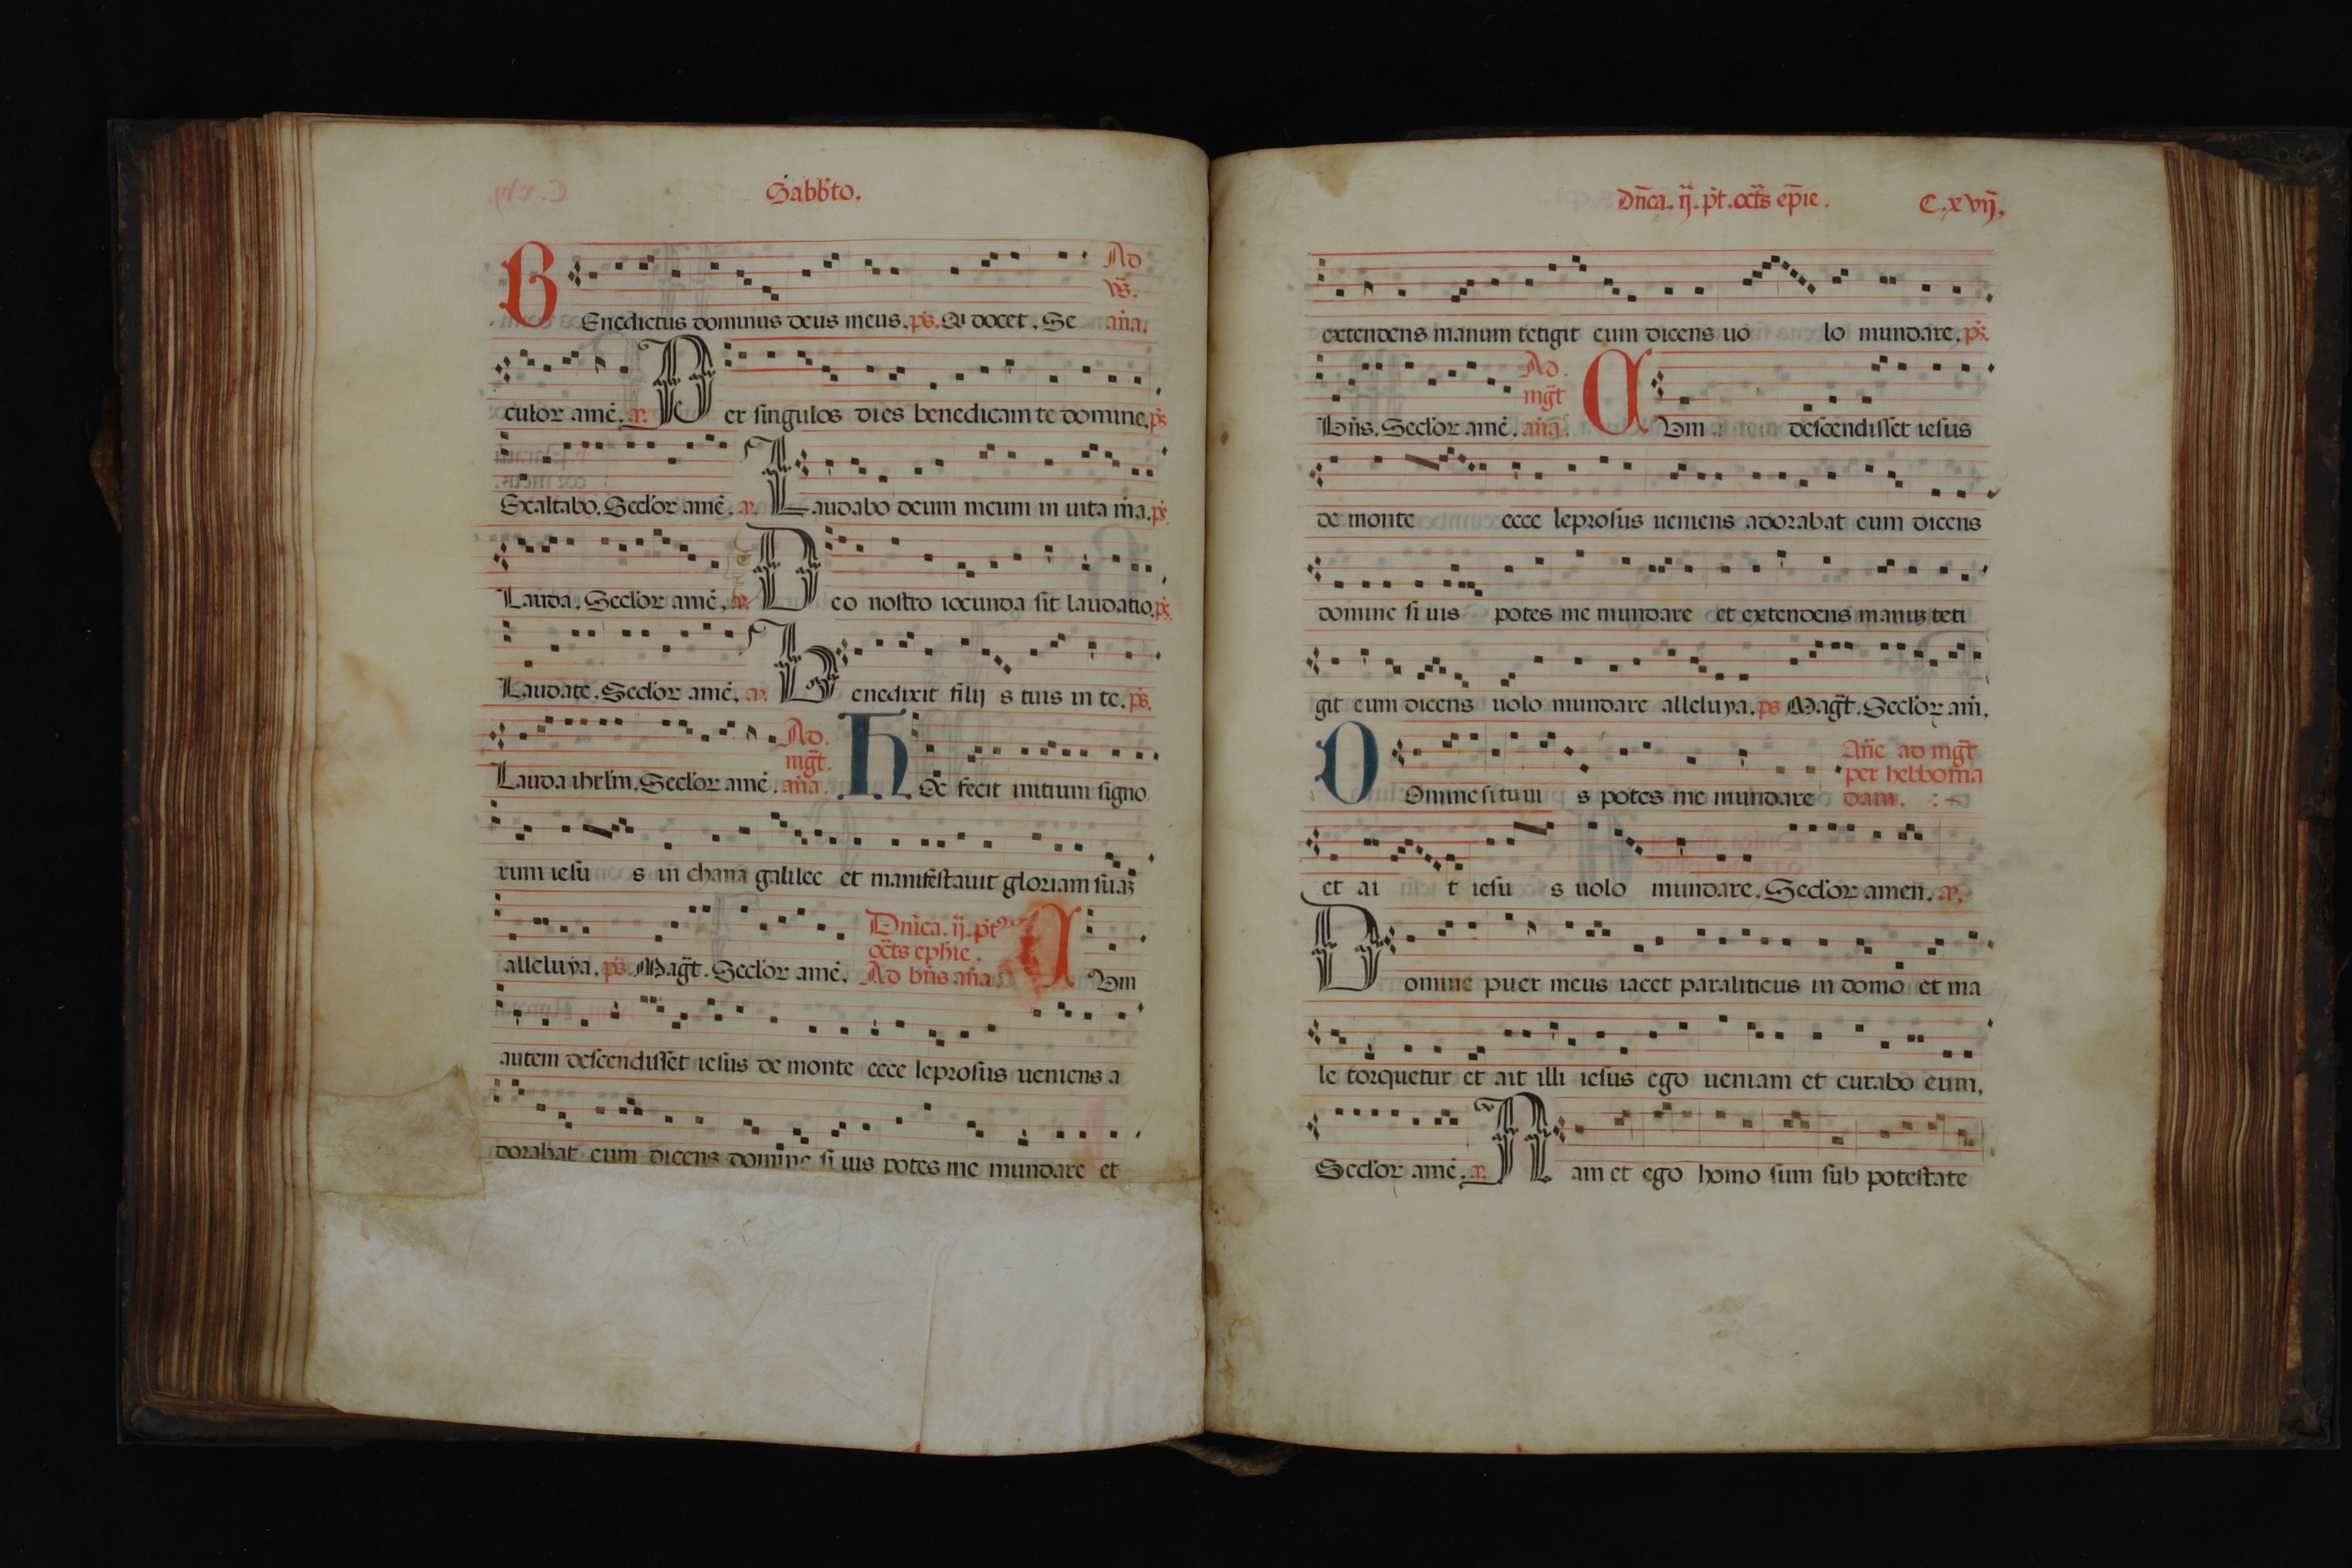 Sabbto.
Ad
vs̄.
BEnedictus dominus deus meus. ps. Qi docet. Se ana.
culor amē. a. Per singulos dies benedicam te domine. ps
Exaltabo. Seclor amē. a. Laudabo deum meum in uita ma. ps.
Lauda. Seclor amē. a. Deo nostro iocunda sit laudatio. ps.
Laudate. Seclor amē. a. Benedixit filij s tuis in te. ps.
Ad.
mgt.
Lauda ihrlm. Seclor amē. ana. hOc fecit initium signo
rum iesu s in chana galilee et manifestauit gloriam suaz
Dnica. ij. pt⁹
octs ephie.
alleluya. ps. Magt. Seclor amē. Ad bn̄s an̄a. CVm
autem descendisset iesus de monte ecce leprosus ueniens a
dorabat eum dicens domine si uis potes me mundare et
Dn̄ca. ij. pt. octs ep̄ie. C. xvij.
extendens manum tetigit eum dicens uo lo mundare. ps.
Ad.
mgt
Bn̄s. Seclor amē. ana. CVm descendisset iesus
de monte ecce leprosus ueniens adorabat eum dicens
domine si uis potes me mundare et extendens manuz teti
git eum dicens uolo mundare alleluya. ps Magt. Seclor am̄.
An̄e ad mgt
per hebboma
DOmine si tu ui s potes me mundare dam.
et ai t iesu s uolo mundare. Seclor amen. a.
Domine puer meus iacet paraliticus in domo et ma
le torquetur et ait illi iesus ego ueniam et curabo eum.
Seclor amē. a. Nam et ego homo sum sub potestate